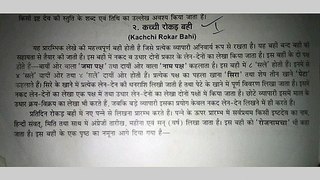 किसी इष्ट देव की स्तुति के शब्द एवं तिथि का उल्लेख अवश्य किया जाता है।
२. कच्ची रोकड़ बही
(Kachchi Rokar Bahi)
यह प्रारम्भिक लेखे की महत्वपूर्ण बही होती है जिसे प्रत्येक व्यापारी अनिवार्य रूप से रखता है। यह बही बन्द बही की
सहायता से तैयार की जाती है। इस बही में नकद व उधार दोनों प्रकार के लेन-देनों का लेखा किया जाता है। इस बही के दो पक्ष
होते हैं—बायीं ओर वाला 'जमा पक्ष' तथा दायीं ओर वाला 'नाम पक्ष' कहलाता है। इस बही में ८ 'सलें' होती हैं। इनमें से
४ 'सलें' दायीं ओर तथा ४ 'सलें' बायीं ओर होती हैं। प्रत्येक पक्ष का पहला खाना 'सिरा' तथा शेष तीन खाने 'पेटा'
कहलाते हैं। सिरे के खाने में प्रत्येक लेन-देन की धनराशि लिखी जाती है तथा पेटे के खाने में पूर्ण विवरण लिखा जाता है।
नकद लेन-देनों का लेखा एक पक्ष में तथा उधार लेन-देनों का लेखा दोनों पक्षों में किया जाता है। छोटे व्यापारी इसमें माल के
उधार क्रय-विक्रय का लेखा भी करते हैं, जबकि बड़े व्यापारी इसका प्रयोग केवल नकद लेन-देन लिखने में ही करते हैं।
प्रतिदिन रोकड़ बही में नए पन्ने से लिखना प्रारम्भ करते हैं। पन्ने के ऊपर प्रारम्भ में सर्वप्रथम किसी इष्टदेव का नाम,
हिन्दी संवत्, मिति तथा साथ में अंग्रेजी तारीख, महीना एवं सन् (वर्ष) लिखा जाता है। इस बही को 'रोजनामचा' भी
कहा जाता है। इस बही के एक पृष्ठ का नमूना आगे दिया गया है—